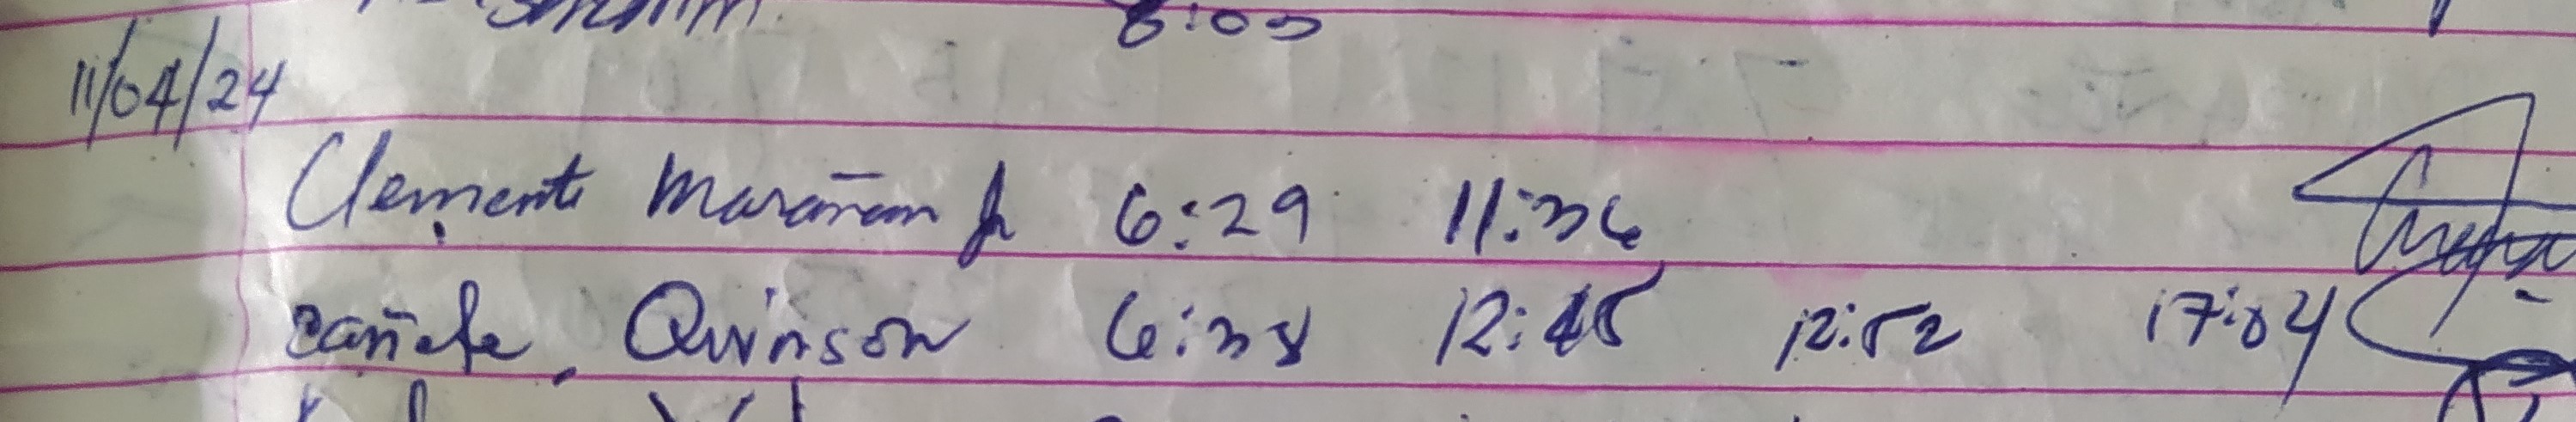 8:05
11/04/24
Clemente Marañon Jr 6:29 11:36
Cañete, Quinson 6:38 12:45 12:52 17:04